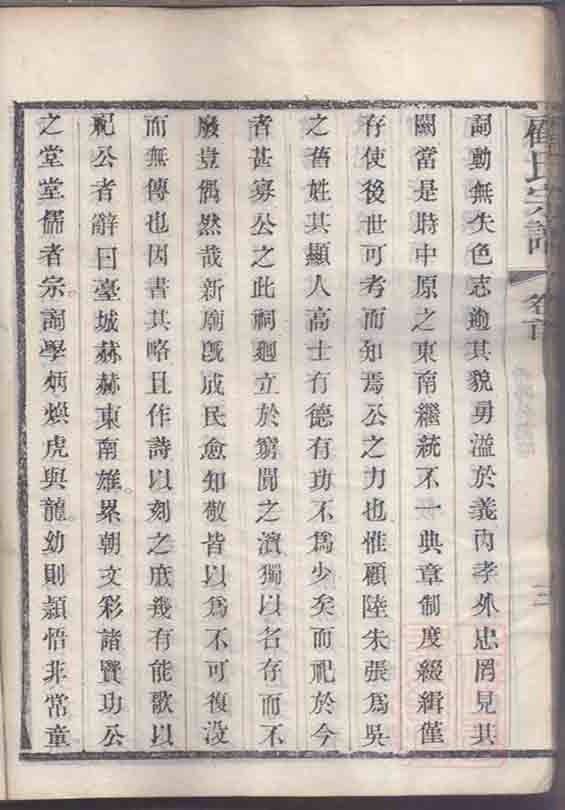 顧氏宗譜 卷首 三
詞動無失色志遒其貌勇溢於義內孝外忠罔見其
闕當是時中原之東南繼統不一典章制度綴緝僅
存使後世可考而知焉公之力也惟顧陸朱張為吳
之舊姓其顯人高士有德有功不為少矣而祀於今
者甚寡公之此祠廻立於窮閒之濱獨以名存而不
廢豈偶然哉新廟旣成民愈知敬皆以為不可復沒
而無傳也因書其略且作詩以刻之庶幾有能歌以
祀公者辭曰臺城赫赫東南雄。累朝文彩諸賢功公
之堂堂儒者宗。詞學炳煥虎與龍。幼則穎悟非常童